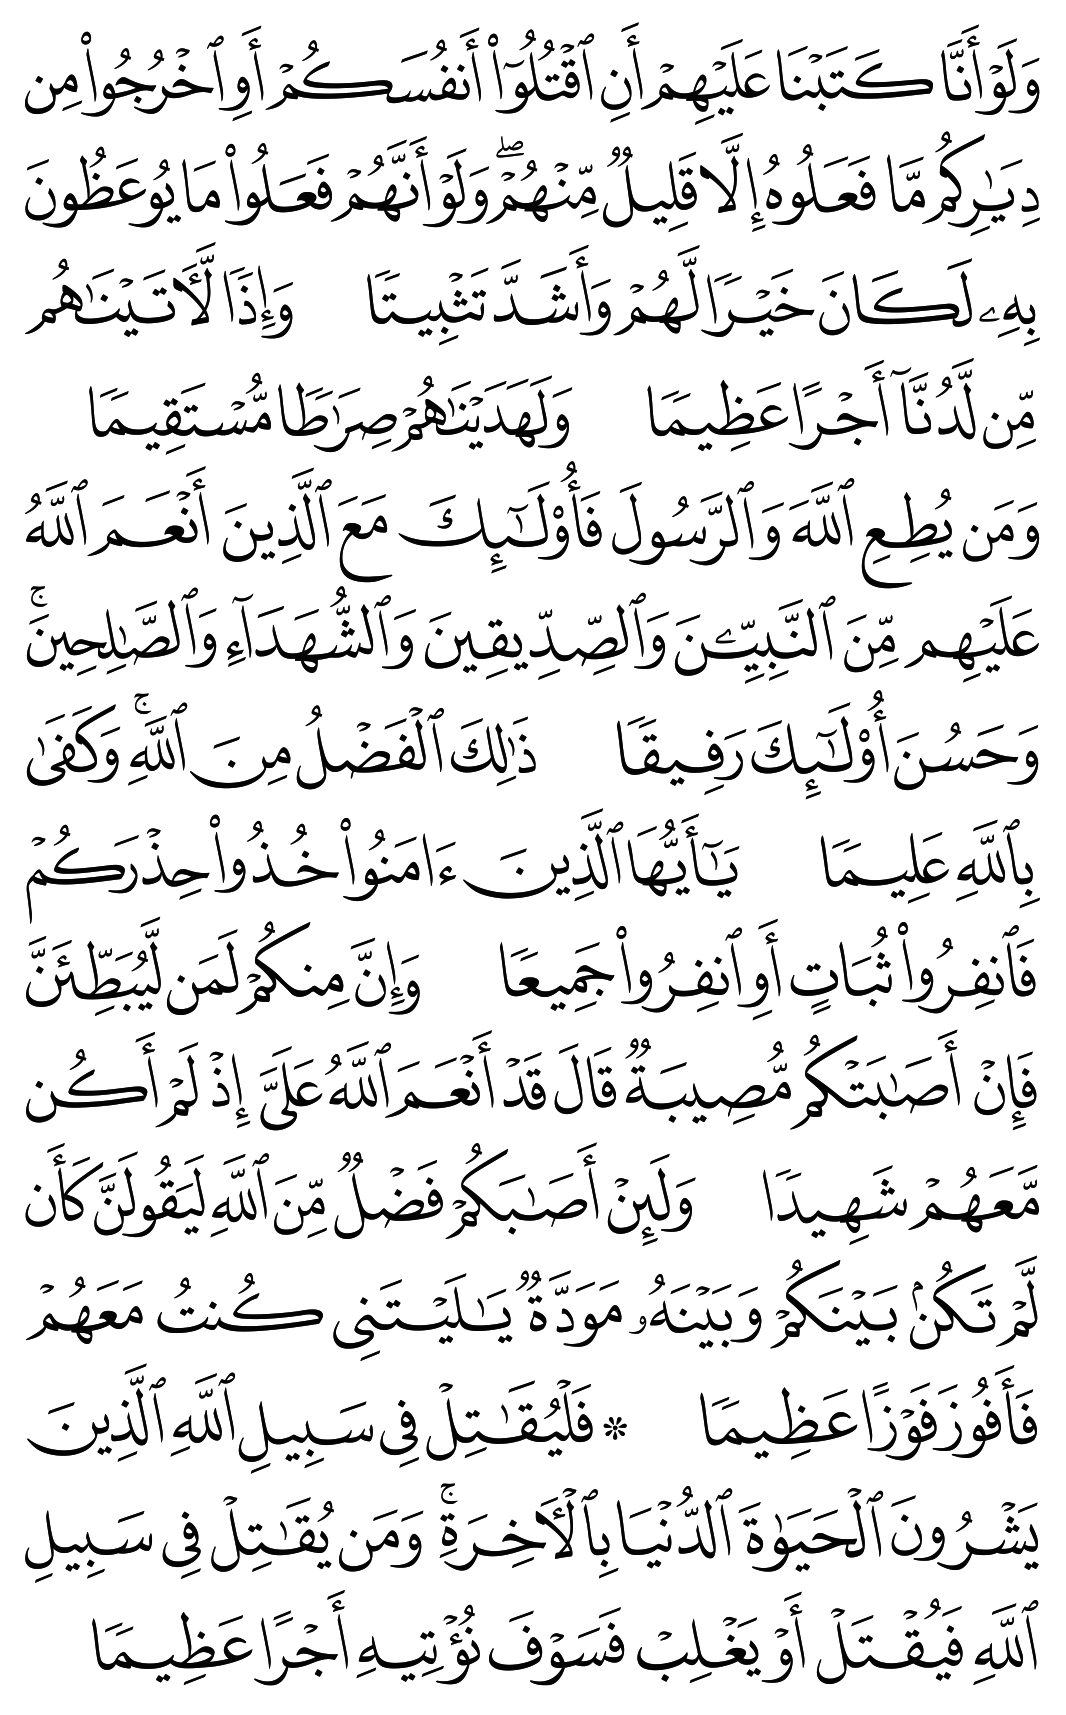 وَلَوۡ أَنَّا كَتَبۡنَا عَلَيۡهِمۡ أَنِ ٱقۡتُلُوٓاْ أَنفُسَكُمۡ أَوِ ٱخۡرُجُواْ مِن
دِيَٰرِكُم مَّا فَعَلُوهُ إِلَّا قَلِيلٞ مِّنۡهُمۡۖ وَلَوۡ أَنَّهُمۡ فَعَلُواْ مَا يُوعَظُونَ
بِهِۦ لَكَانَ خَيۡرٗا لَّهُمۡ وَأَشَدَّ تَثۡبِيتٗا وَإِذٗا لَّأٓتَيۡنَٰهُم
مِّن لَّدُنَّآ أَجۡرًا عَظِيمٗا وَلَهَدَيۡنَٰهُمۡ صِرَٰطٗا مُّسۡتَقِيمٗا
وَمَن يُطِعِ ٱللَّهَ وَٱلرَّسُولَ فَأُوْلَٰٓئِكَ مَعَ ٱلَّذِينَ أَنۡعَمَ ٱللَّهُ
عَلَيۡهِم مِّنَ ٱلنَّبِيِّـۧنَ وَٱلصِّدِّيقِينَ وَٱلشُّهَدَآءِ وَٱلصَّٰلِحِينَۚ
وَحَسُنَ أُوْلَٰٓئِكَ رَفِيقٗا ذَٰلِكَ ٱلۡفَضۡلُ مِنَ ٱللَّهِۚ وَكَفَىٰ
بِٱللَّهِ عَلِيمٗا يَٰٓأَيُّهَا ٱلَّذِينَ ءَامَنُواْ خُذُواْ حِذۡرَكُمۡ
فَٱنفِرُواْ ثُبَاتٍ أَوِ ٱنفِرُواْ جَمِيعٗا وَإِنَّ مِنكُمۡ لَمَن لَّيُبَطِّئَنَّ
فَإِنۡ أَصَٰبَتۡكُم مُّصِيبَةٞ قَالَ قَدۡ أَنۡعَمَ ٱللَّهُ عَلَيَّ إِذۡ لَمۡ أَكُن
مَّعَهُمۡ شَهِيدٗا وَلَئِنۡ أَصَٰبَكُمۡ فَضۡلٞ مِّنَ ٱللَّهِ لَيَقُولَنَّ كَأَن
لَّمۡ تَكُنۢ بَيۡنَكُمۡ وَبَيۡنَهُۥ مَوَدَّةٞ يَٰلَيۡتَنِي كُنتُ مَعَهُمۡ
فَأَفُوزَ فَوۡزًا عَظِيمٗا ۞ فَلۡيُقَٰتِلۡ فِي سَبِيلِ ٱللَّهِ ٱلَّذِينَ
يَشۡرُونَ ٱلۡحَيَوٰةَ ٱلدُّنۡيَا بِٱلۡأٓخِرَةِۚ وَمَن يُقَٰتِلۡ فِي سَبِيلِ
ٱللَّهِ فَيُقۡتَلۡ أَوۡ يَغۡلِبۡ فَسَوۡفَ نُؤۡتِيهِ أَجۡرًا عَظِيمٗا